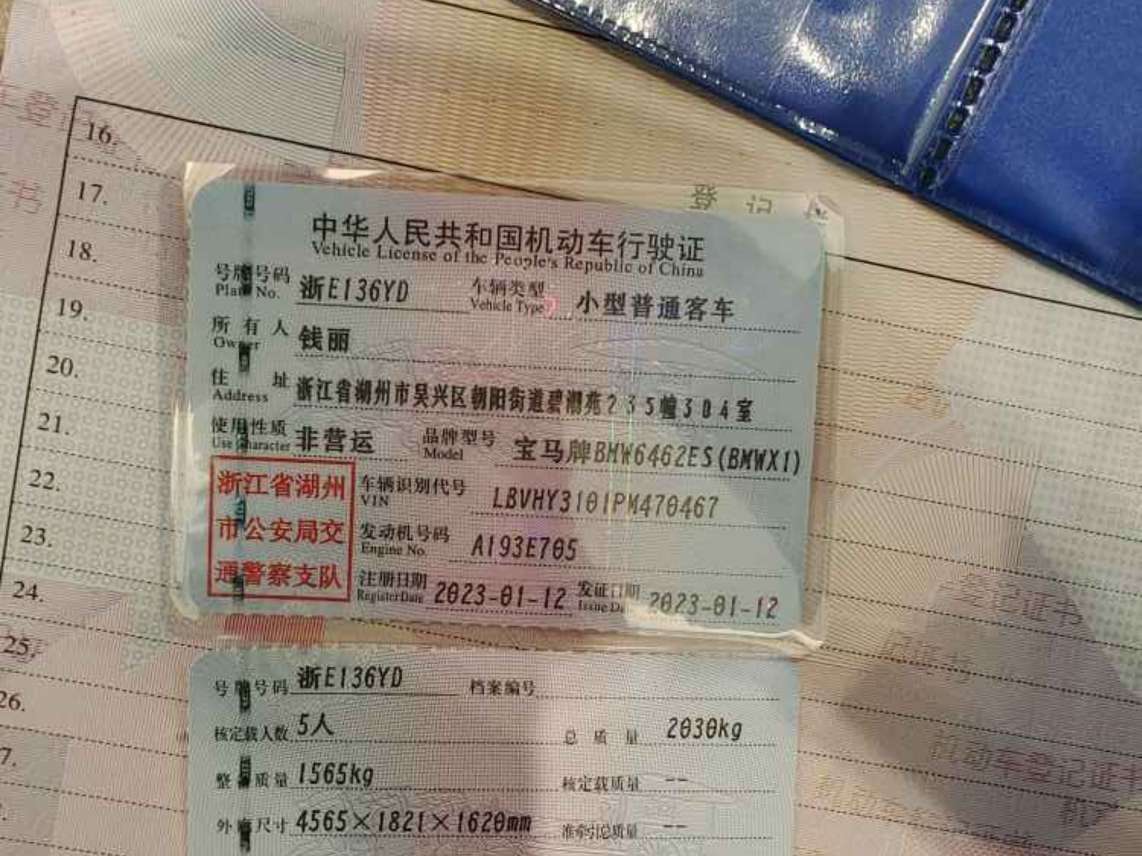 登记
16.
17.
18.
19.
20.
21.
22.
23.
24.
25.
26.
7.
中华人民共和国机动车行驶证
Vehicle License of the People's Republic of China
号牌号码 浙E136YD 车辆类型 小型普通客车
Plate No. Vehicle Type
所有人 钱丽
Owner
住址 浙江省湖州市吴兴区朝阳街道碧湖苑235幢304室
Address
使用性质 非营运 品牌型号 宝马牌BMW6462ES(BMWX1)
Use Character Model
浙江省湖州
市公安局交
通警察支队
车辆识别代号 LBVHY3101PM470467
VIN
发动机号码 A193E705
Engine No.
注册日期 2023-01-12 发证日期 2023-01-12
Register Date Issue Date
号牌号码 浙E136YD 档案编号
核定载人数 5人 总质量 2030kg
整备质量 1565kg 核定载质量 --
外廓尺寸 4565×1821×1620mm 准牵引总质量 --